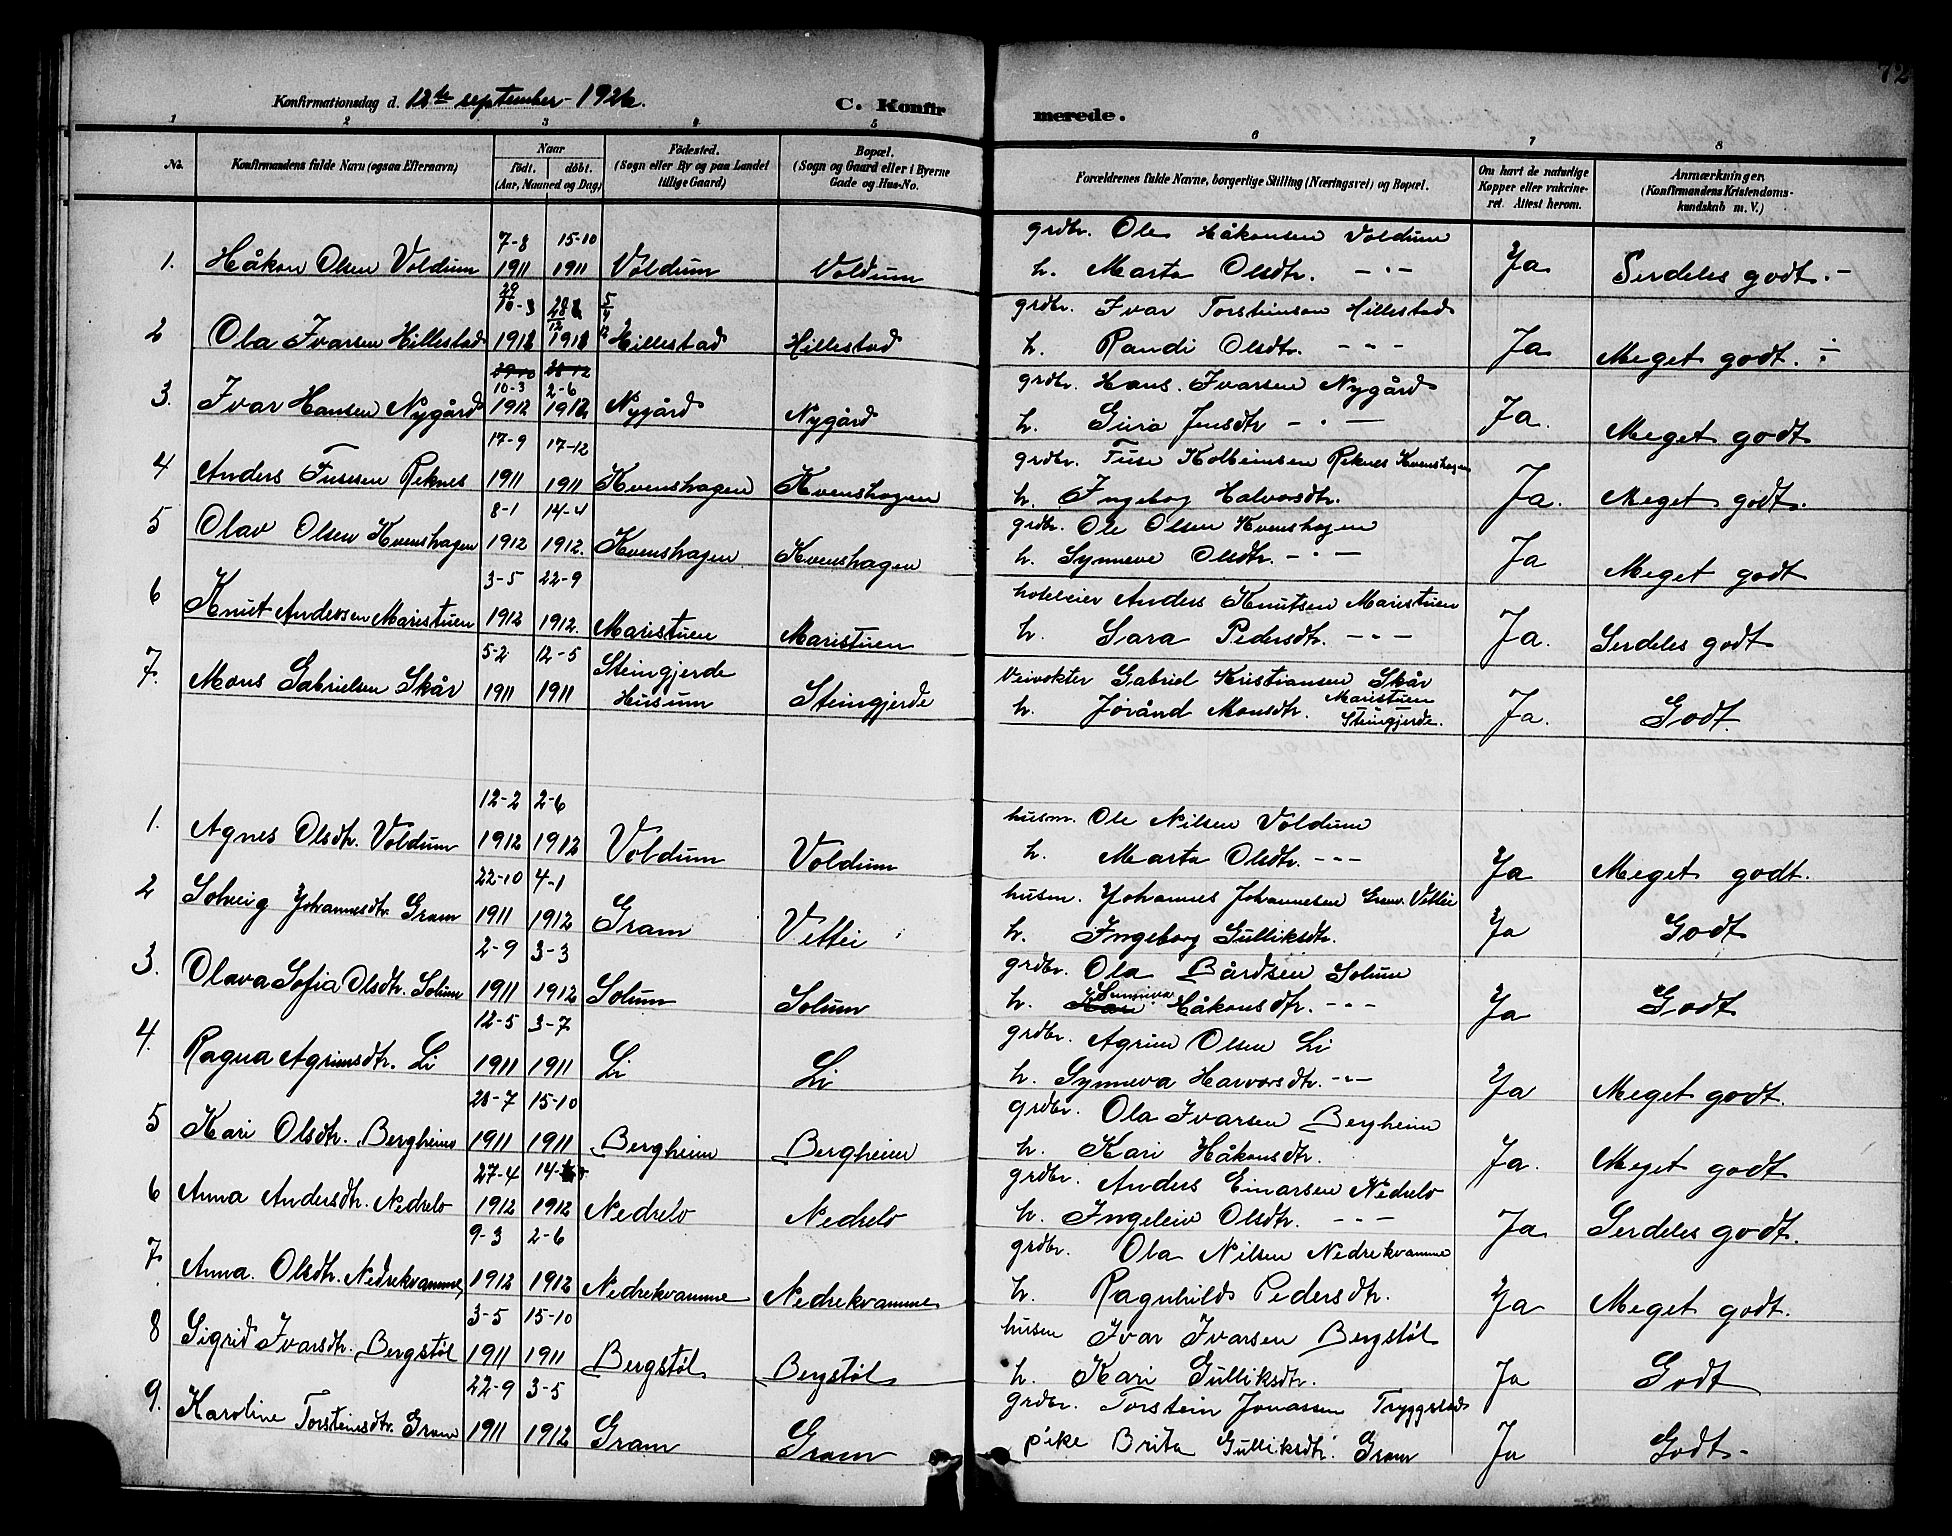 72
Konfirmationsdag d. 12te september - 1926.
C. Konfirmerede.
1 2 3 4 5 6 7 8
No. Konfirmandens fulde Navn (ogsaa Efternavn) Naar født. døbt. (Aar, Maaned og Dag) Fødested. (Sogn eller By og paa Landet tillige Gaard) Bopæl. (Sogn og Gaard eller i Byerne Gade og Hus-No. Forældrenes fulde Navne, borgerlige Stilling (Næringsvei) og Bopæl. Om havt de naturlige Kopper eller vakcineret. Attest herom. Anmærkninger. (Konfirmandens Kristendomskundskab m. V.)
7-8 15-10 grdbr. Ole Håkonsen Voldum
1. Håkon Olsen Voldum 1911 1911 Voldum Voldum h. Marta Olsdtr. - " - Ja Serdeles godt. -
29/10 28/12 grdbr. Ivar Torsteinson Hillestad
2 Ola Ivarsen Hillestad 1911 1912 Hillestad Hillestad h. Randi Olsdtr. - - - Ja Meget godt. ÷
10-3 2-6 grdbr. Hans Ivarsen Nygård
3. Ivar Hansen Nygård 1912 1912 Nygård Nygård h. Guro Jensdtr - " - Ja. Meget godt
17-9 17-12 grdbr. Tuse Kolbeinsen Reknes Kvenshagen
4 Anders Tusesen Reknes 1911 1911 Kvenshagen Kvenshagen h. Ingeborg Halvorsdtr. Ja. Meget godt.
8-1 14-4 grdbr. Ole Olsen Kvenshagen
5 Olav Olsen Kvenshagen 1912 1912. Kvenshagen Kvenshagen h. Synneve Olsdtr. - " - Ja Meget godt
3-5 22-9 hoteleier Anders Knutsen Maristuen
6 Knut Anderssen Maristuen 1912 1912. Maristuen Maristuen h. Sara Pedersdtr. - - - Ja. Serdeles godt
5-2 12-5 Steingjerde Veivokter Gabriel Kristiansen Skår
7. Mons Gabrielsen Skår 1911 1911 Husum Steingjerde h. Jorånd Monsdtr. Maristuen Steingjerde. Ja. Godt.
12-2 2-6 husm. Ole Nilsen Voldum
1. Agnes Olsdtr. Voldum 1912 1912 Voldum Voldum h. Marta Olsdtr. - - - Ja Meget godt.
22-10 4-1 husm. Johannes Johannesen Gram. Vettei
2 Solveig Johannesdtr. Gram 1911 1912 Gram Vettei h. Ingeborg Gulliksdtr. Ja Godt
2-9 3-3 grdbr. Ola Bårdsen Solum
3. Olava Sofia Olsdtr. Solum 1911 1912 Solum Solum h. Kari Sunniva Håkonsdtr. - - - Ja Godt
12-5 3-7 grdbr. Agrim Olsen Li
4. Ragna Agrimsdtr. Li 1911 1911 Li Li h. Synneva Harvorsdtr. - " - Ja Meget godt.
28-7 15-10 grdbr. Ola Ivarsen Bergheim
5 Kari Olsdtr. Bergheim 1911 1911 Bergheim Bergheim h. Kari Håkonsdtr. Ja. Meget godt
27-4 grdbr. Anders Einarsen Nedrelo
6 Anna Andersdtr. Nedrelo 1912 1912 Nedrelo Nedrelo h. Ingeleiv Olsdtr. - - - Ja Serdeles godt.
9-3 2-6 grdbr. Ola Nilsen Nedrekvamme
7 Anna. Olsdtr. Nedrekvamme 1912 1912 Nedrekvamme Nedrekvamme h. Ragnhild Pedersdtr. Ja Meget godt.
3-5 15-10 husm Ivar Ivarsen Bergstøl
8 Sigrid Ivarsdtr. Bergstøl 1911 1911 Bergstøl Bergstøl h. Kari Gulliksdtr. Ja Godt
22-9 3-5 grdbr. Torstein Jonassen Tryggestad
9. Karoline Torsteinsdtr. Gram 1911 1912 Gram Gram pike Brita Gulliksdtr. Gram Ja Godt -